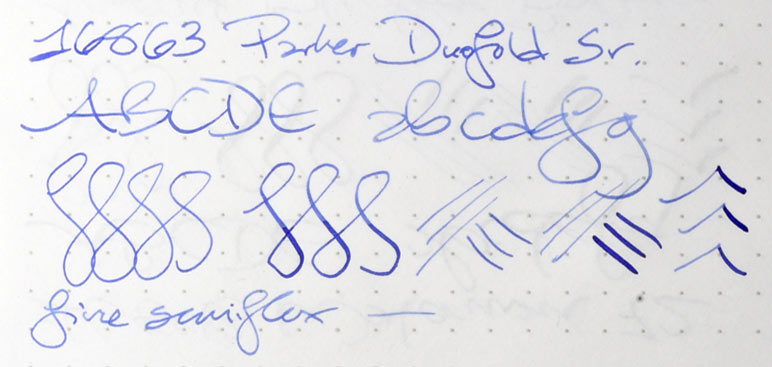 16863 Parker Duofold Sr.
ABCDE abcdefg
fine semiflex —